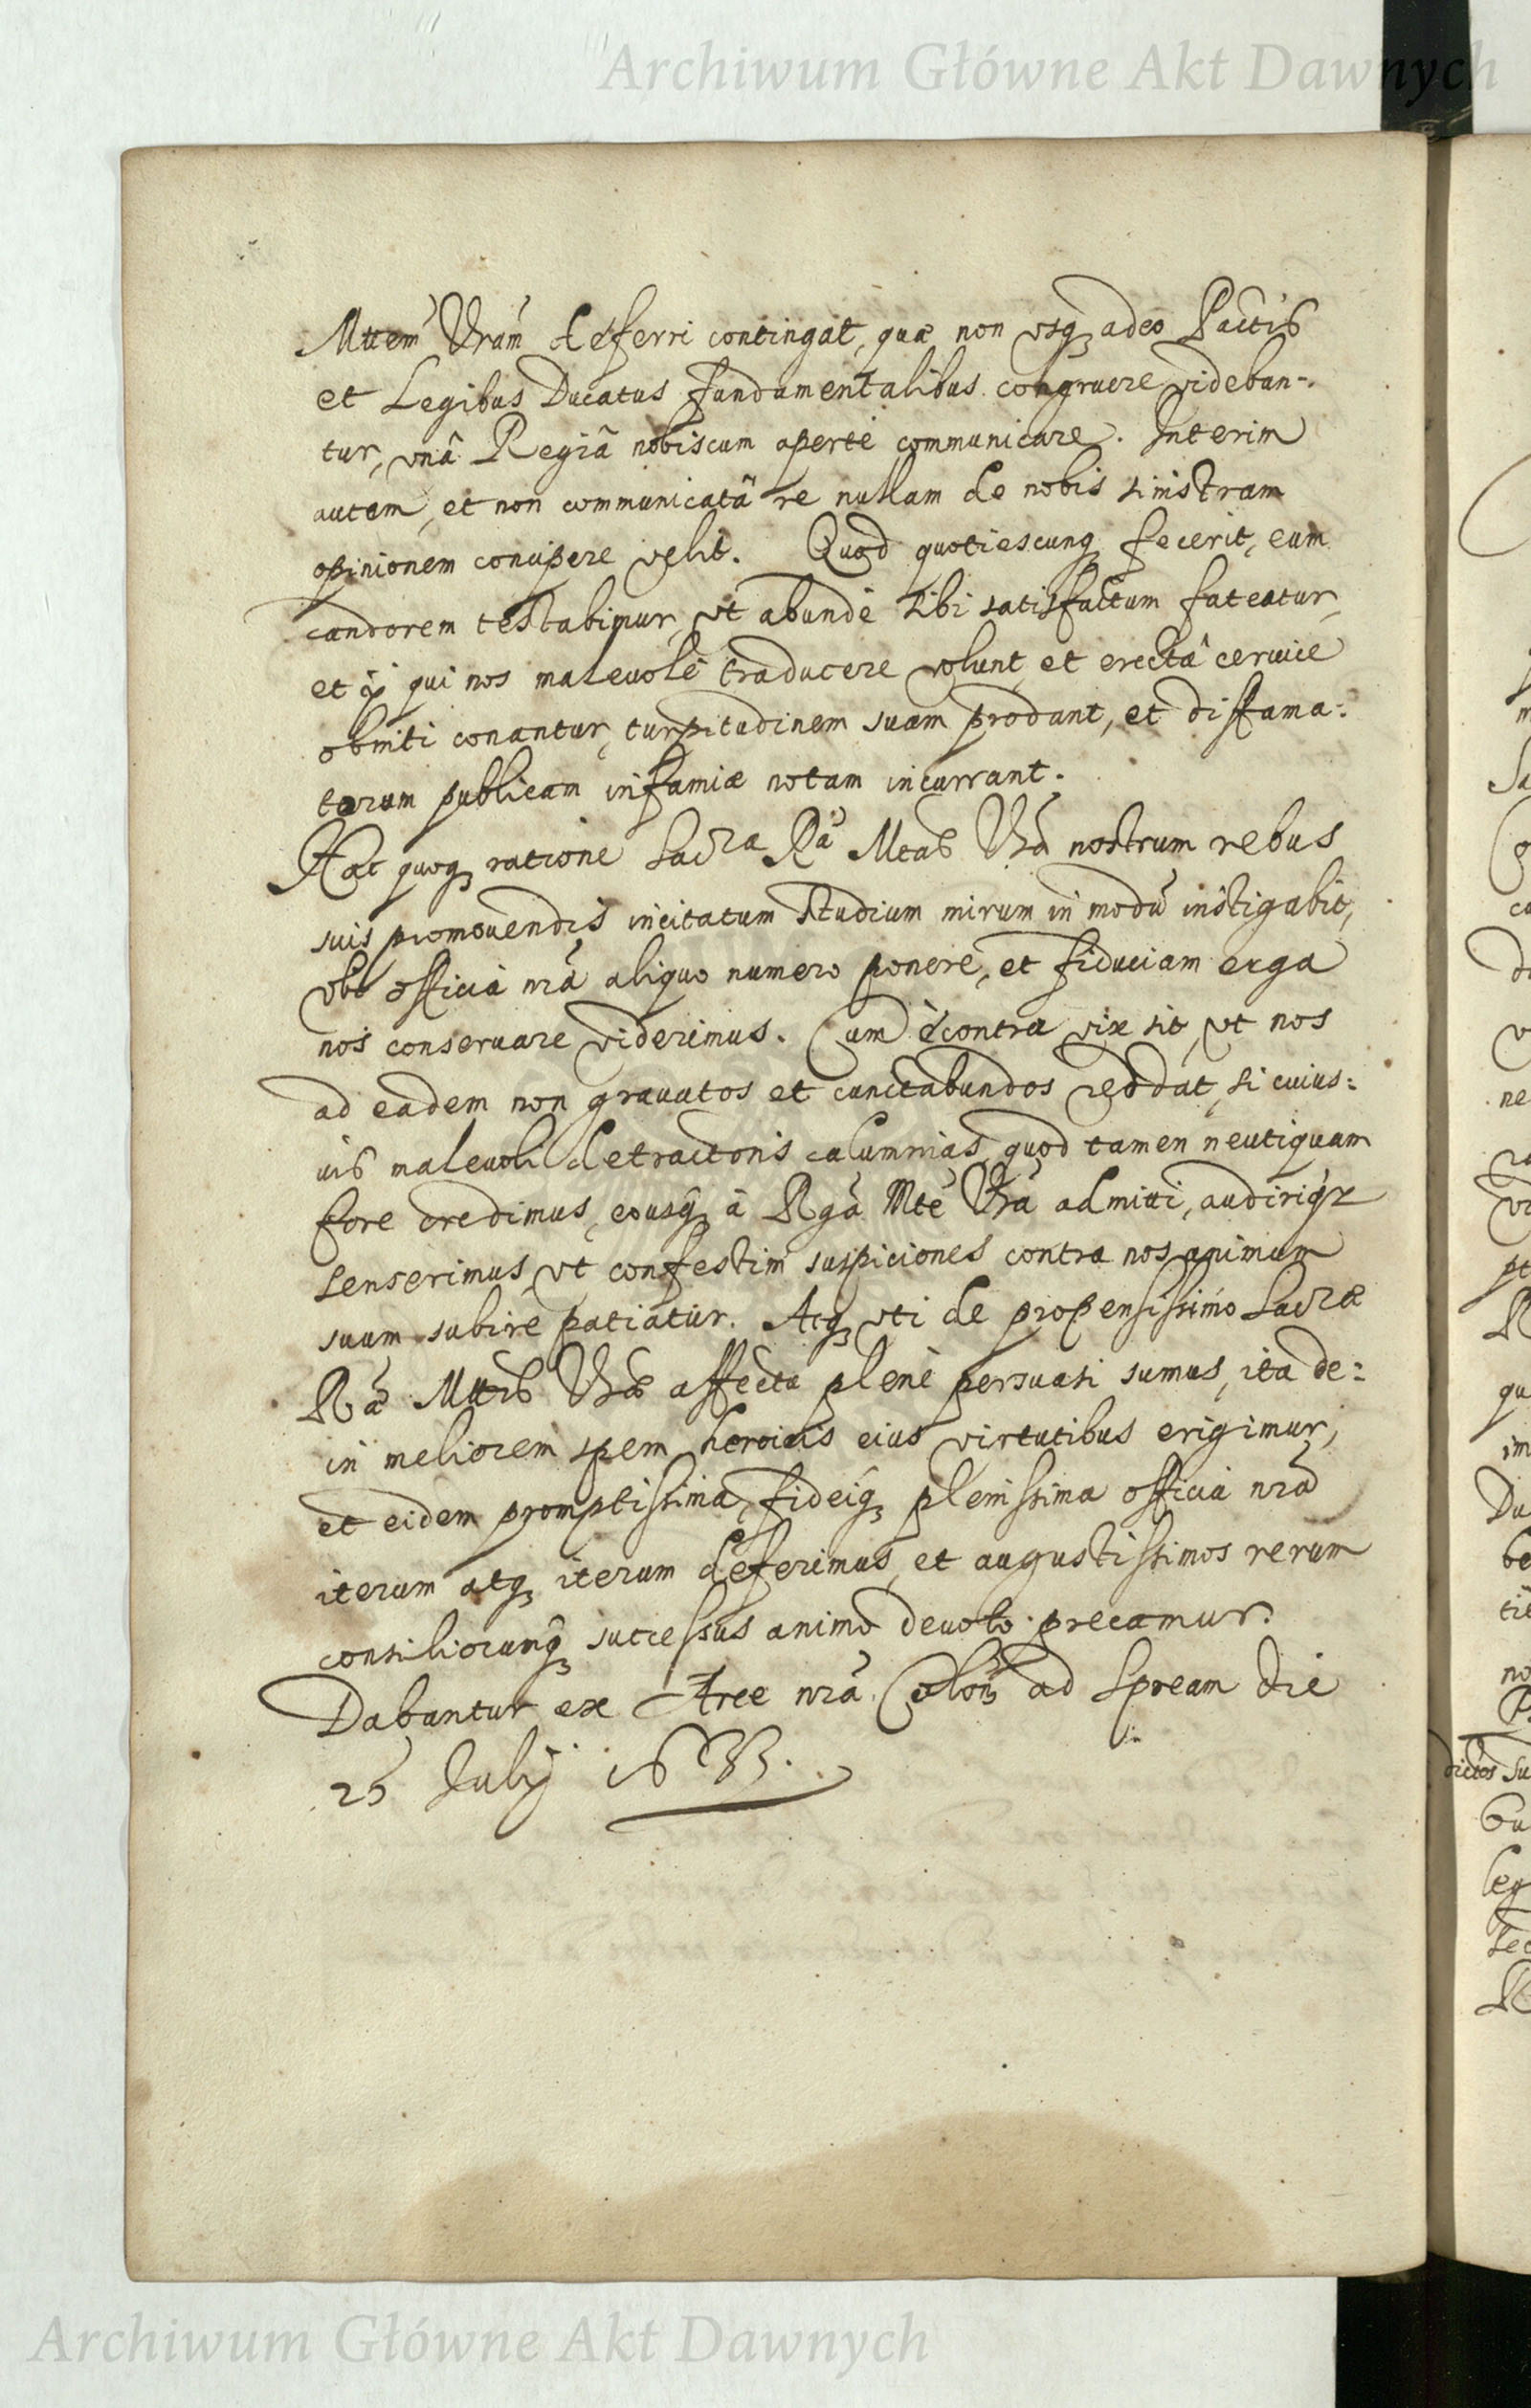 Archiwum Główne Akt Dawnych
Mttem Vram deferri contingat, quæ non usq, adeo Pactis
et Legibus Ducatus fundamentalibus congruere videban-
tur, unâ Regiâ nobiscum apertè communicare. Interim
autem, et non communicatâ re nullam de nobis sinistram
opinionem concipere velit. Quod quotiescunq, fecerit, eum
candorem testabimur, ut abundè sibi satisfactum fateatur,
et ij qui nos malevolè traducere volunt, et erectâ cervice
obniti conantur, turpitudinem suam prodant, et diffama=
torum publicam infamiæ notam incurrant.
Hac quoq, ratione Sacra Ra Mtas Vra nostrum rebus
suis promovendis incitatum studium mirum in modũ instigabit,
ubi officia nra aliquo numero ponere, et fiduciam erga
nos conseruare viderimus. Cum ècontra vix sit, ut nos
ad eadem non grauatos et cunctabundos reddat, si cuius=
vis maleuoli detractoris calumnias, quod tamen neutiquam
fore credimus, eousq, à Rga Mte Vra admitti, audiriq,
senserimus, ut confestim suspiciones contra nos animum
suum subire patiatur. Atq, uti de propensissimo Sacræ
Ræ Mttis Vræ affectu plenè persuasi sumus, ita de=
in meliorem spem heroicis eius virtutibus erigimur,
et eidem promptissima, fideiq, plenissima officia nra
iterum atq, iterum deferimus, et augustissimos rerum
consiliorumq, successus animo deuoto precamur.
Dabantur ex Arce nra Colon ad Spream die
25 Julij 1633.
Archiwum Główne Akt Dawnych